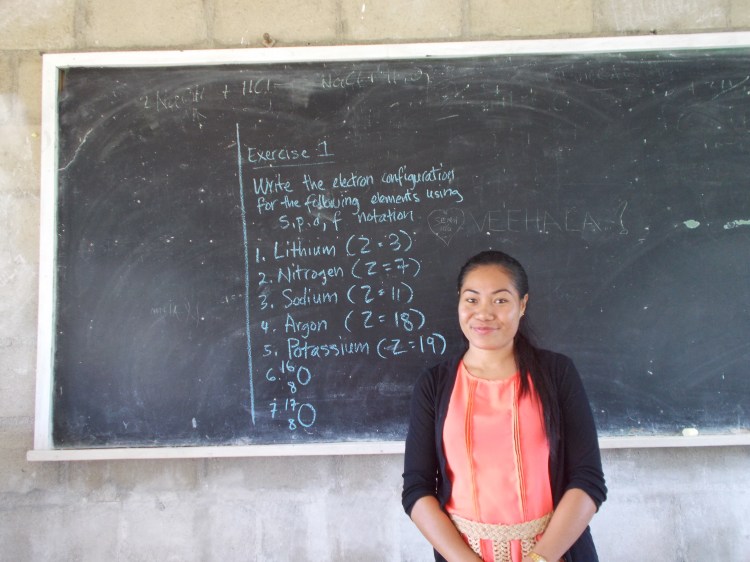 + HCl
Exercise 1
Write the electron configuration
for the following elements using
s, p, d, f notation
1. Lithium (Z = 3)
2. Nitrogen (Z = 7)
3. Sodium (Z = 11)
4. Argon (Z = 18)
5. Potassium (Z = 19)
6. 16 8 O
7. 17 8 O
VEEHALA